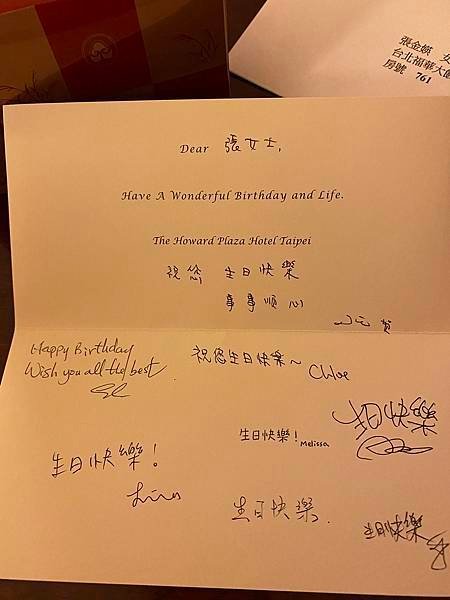 張金媖 女
台北福華大飯
房號 761
Dear 張女士,
Have A Wonderful Birthday and Life.
The Howard Plaza Hotel Taipei
祝您 生日快樂
事事順心
賀
Happy Birthday
Wish you all the best
祝您生日快樂~
Chloe
生日快樂
生日快樂! Melissa
生日快樂!
生日快樂.
生日快樂